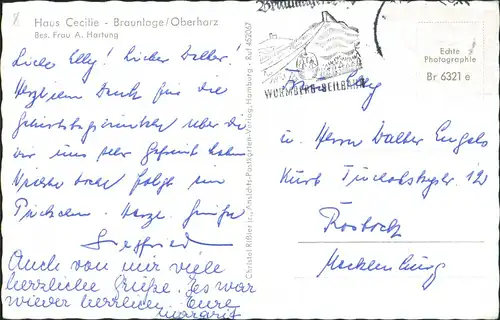 Haus Cecilie - Braunlage/Oberharz
Bes. Frau A. Hartung
Liebe Elly! Lieber Walter!
Herzlichen Dank für die
Geburtstagswünsche über die
wir uns sehr gefreut haben
Nächste Woche folgt ein
Päckchen. Herzl. Grüße
Siegfried
Auch von mir viele
herzliche Grüße. Es war
wieder herrlich. Eure
Margrit
Christel Rißler jr., Ansichts-Postkarten-Verlag, Hamburg - Ruf 452067
WURMBERG-SEILBAHN
Echte
Photographie
Br 6321 e
Elly
u. Herrn Walter Engels
Kurt Tucholskystr. 12
Rostock
Mecklenburg